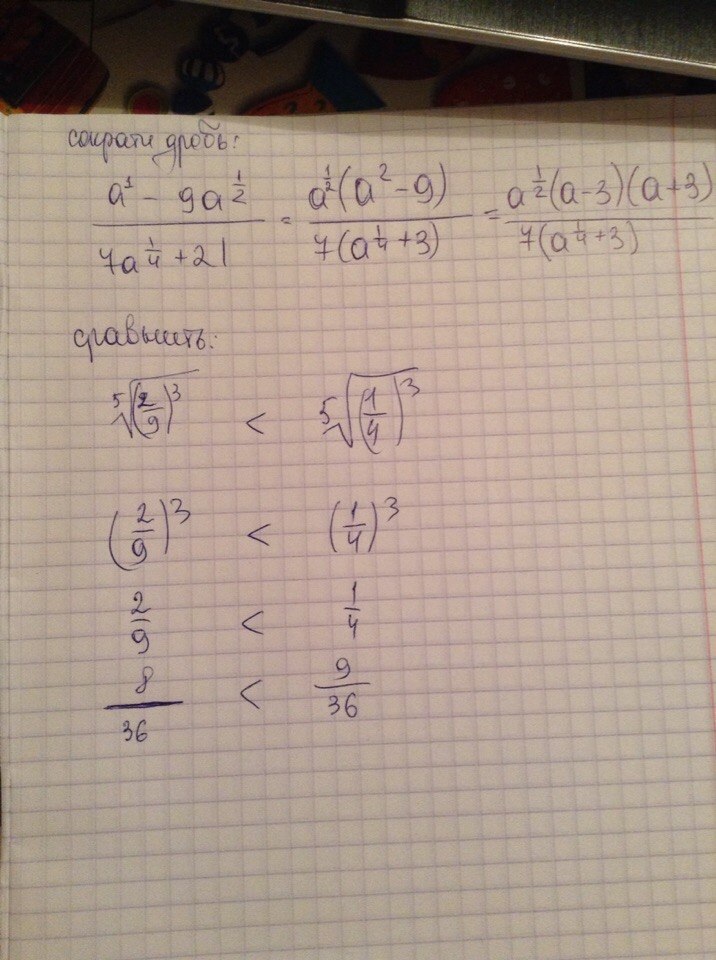 сократи дробь:
a¹ - 9a^{1/2} / 7a^{1/4} + 21 = a^{1/2}(a² - 9) / 7(a^{1/4} + 3) = a^{1/2}(a - 3)(a + 3) / 7(a^{1/4} + 3)
сравнить:
⁵√(2/9)³ < ⁵√(1/4)³
(2/9)³ < (1/4)³
2/9 < 1/4
8/36 < 9/36